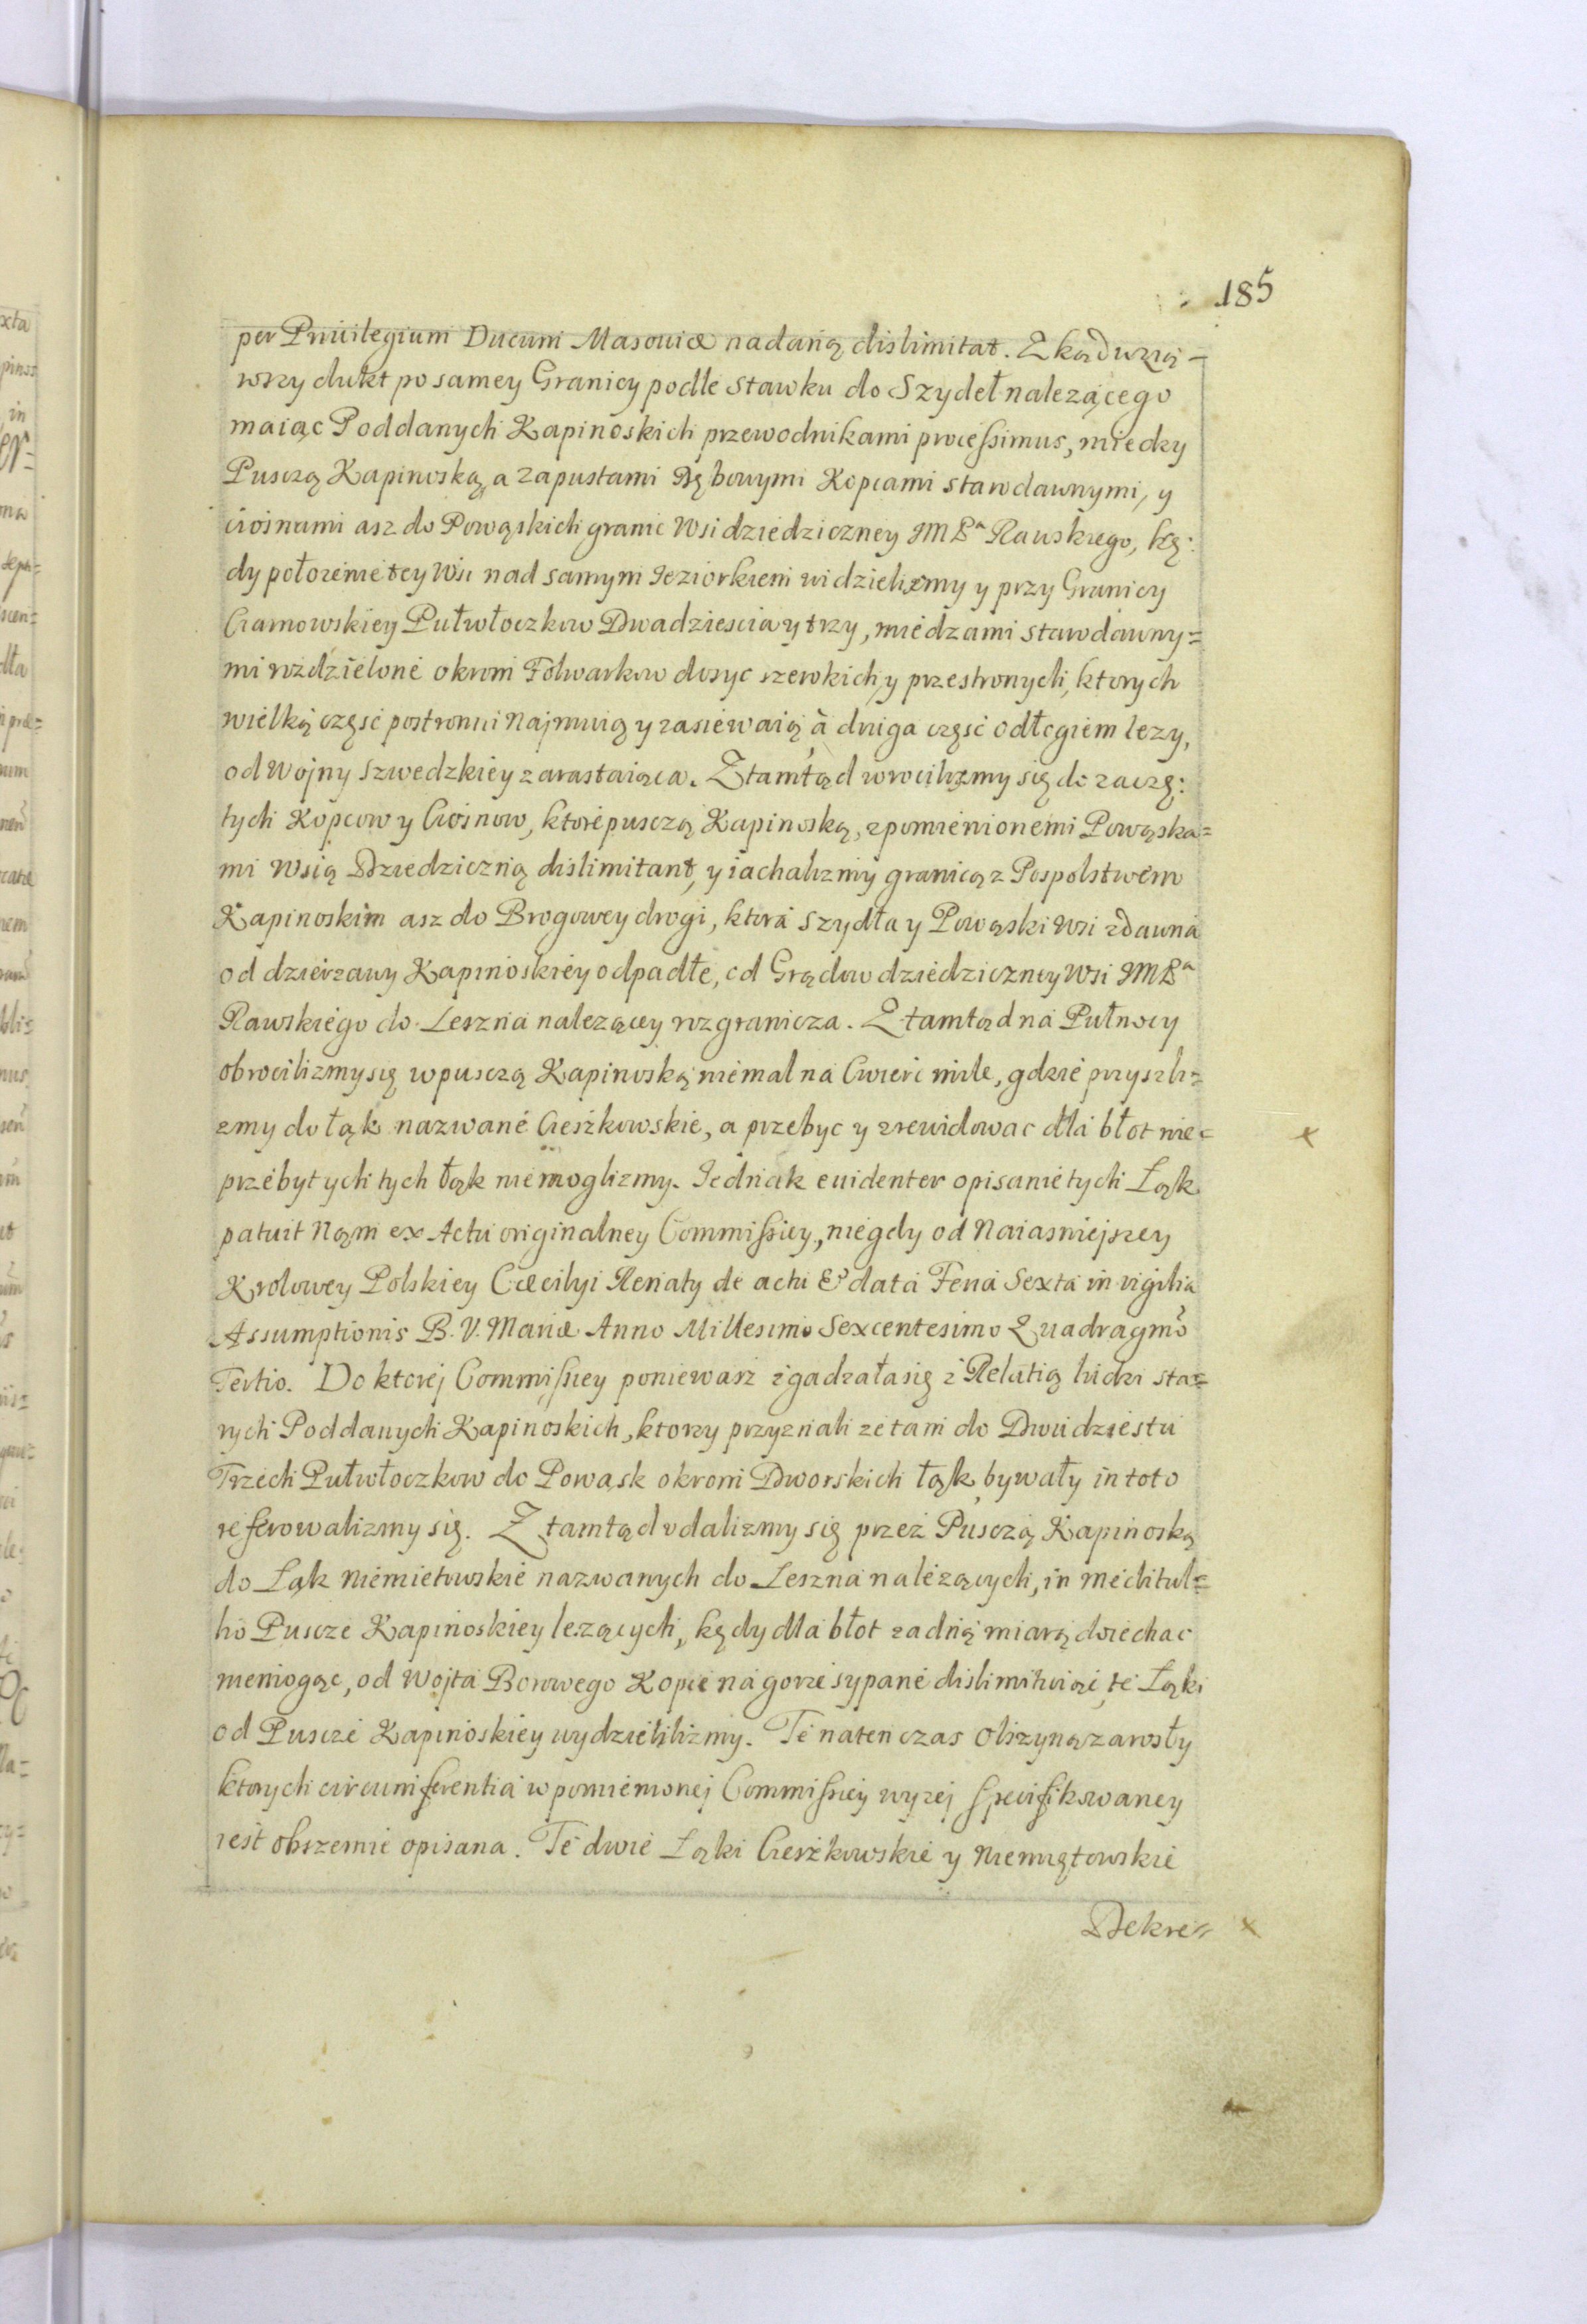 185
per Priuilegium Ducum Masouiæ nadaną dislimitat. Zkąd wzią-
wszy dukt po samey Granicy podle stawku do Szydeł nalezącego
maiąc Poddanych Kapinoskich przewodnikami processimus, miedzy
Pusczą Kapinoską, a zapustami Dębowymi Kopcami starodawnymi, y
ciosnami asz do Powąskich granic Wsi dziedziczney JMPª Rawskiego, kę:
dy położenie tey Wsi nad samym Jeziorkiem widzielizmy y przy Granicy
Czarnowskiey Pułwłoczkow Dwadziescia y trzy, miedzami starodawny=
mi rozdzielone okrom Folwarkow dosyc szerokich, y przestronych, ktorych
wielką część postronni Najmuią y zasiewaią à druga część odłogiem lezy,
od Wojny Szwedzkiey zarastaiąca. Ztamtąd wrocilizmy się do zaczę:
tych Kopcow y Ciosnow, ktore pusczą Kapinoską, z pomienionemi Powąska=
mi Wsią Dziedziczną dislimitant, y iachalizmy granicą z Pospolstwem
Kapinoskim asz do Brogowey drogi, ktora Szydła y Powąski Wsi zdawna
od dzierzawy Kapinoskiey odpadłe, od Grądow dziedziczney Wsi JMPª
Rawskiego do Leszna nalezącey rozgranicza. Ztamtąd na Pułnocy
obrocilizmy się w pusczą Kapinoską niemal na Cwierć mile, gdzie przyszli=
zmy do łąk nazwane Cieszkowskie, a przebyc y zrewidowac dla błot nie=
przebytych tych łąk niemoglizmy. Jednak euidenter opisanie tych Łąk
patuit Nam ex Actu originalney Commissiey, niegdy od Naiasniejszey
Krolowey Polskiey Cæcilyi Renaty de actu & data Feria Sexta in vigilia
Assumptionis B. V. Mariæ Anno Millesimo Sexcentesimo Quadragm̃o
Tertio. Do ktorej Commissiey poniewasz zgadzała się z Relatią ludzi sta=
rych Poddanych Kapinoskich, ktorzy przyznali ze tam do Dwudziestu
Trzech Pułwłoczkow do Powąsk okrom Dworskich łąk bywały in toto
referowalizmy się. Ztamtąd vdalizmy się przez Pusczą Kapinoską
do Łąk Niemietowskie nazwanych do Leszna nalezących, in meditul=
lio Puscze Kapinoskiey lezących, kędy dla błot zadną miarą dociechac
niemogąc, od Wojta Borowego Kopce na gorze sypane dislimituiące te Łąki
od Puscze Kapinoskiey wydzielilizmy. Te naten czas Olszyną zarosły
ktorych circumferentia w pomienionej Commissiey wyzej specifikowaney
iest obszernie opisana. Te dwie Łąki Cieszkowskie y Niemiętowskie
Dekre=